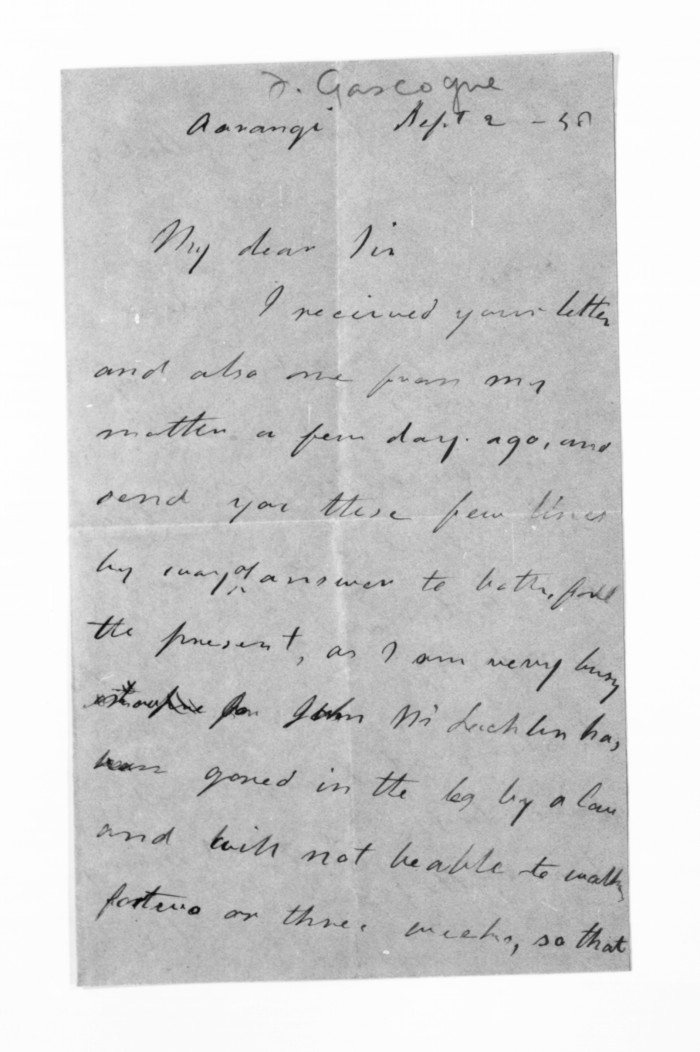 F. Gascogne
Aorangi Sept 2 - 58
My dear Sir
I received your letter
and also one from my
mother a few days ago, and
send you these few lines
by way of answer to both, for
the present, as I am very busy
for John McLachlan has
been gored in the leg by a cow
and will not be able to walk
for two or three weeks, so that